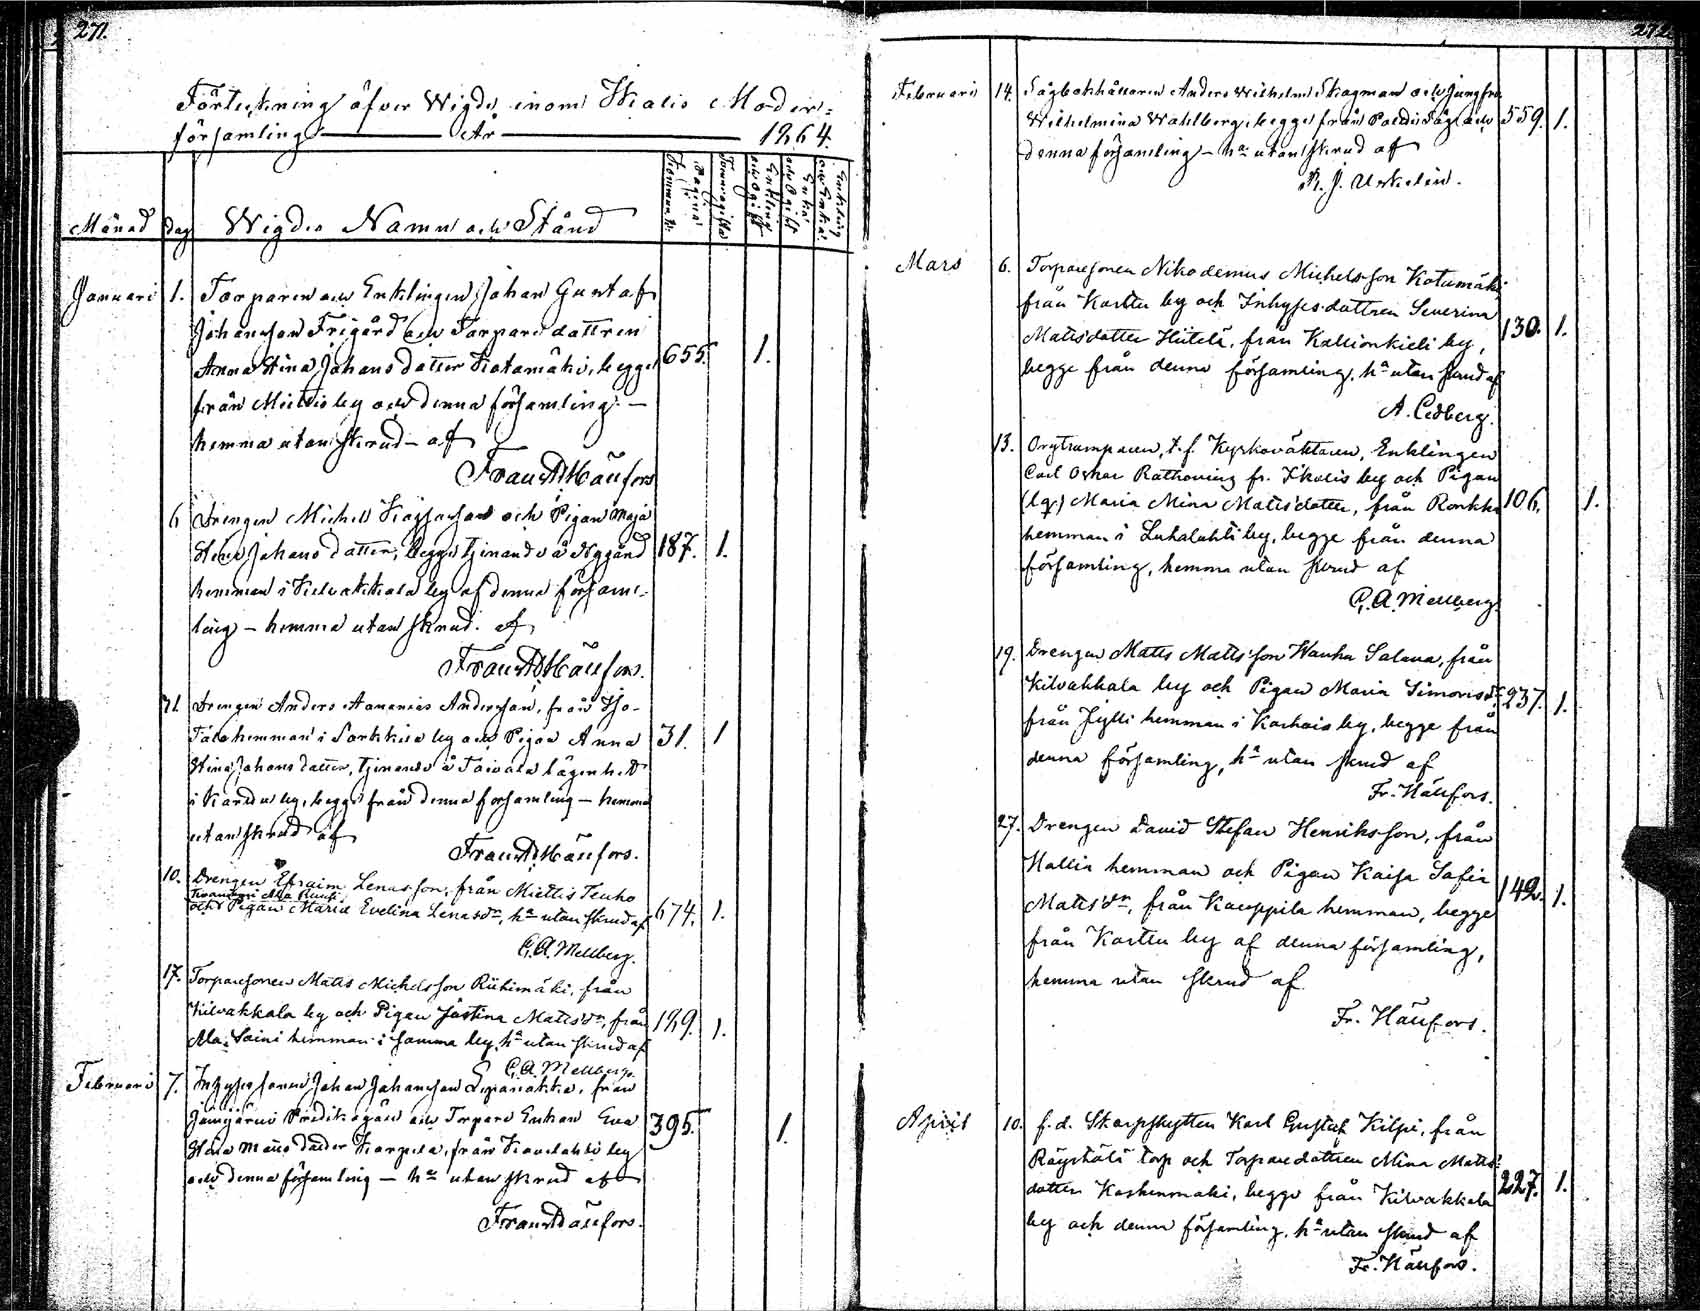 271.
Förteckning öfver Wigde inom Ikalis Moder-
församling År 1864.
Månad
dag
Wigdes Namn och Stånd
Pagina i
Kommun. B.
Tvenne ogifta
Enkling
och Ogift
Enka
och Ogift
Enkling
och Enka
Januari 1. Torparen och Enklingen Johan Gustaf
Johansson Frigård och Torparedottren
Anna Stina Johansdotter Katamäki, begge 655. 1.
från Miettis by och denna församling. —
hemma utan skrud — af
Frans Häufors
6 Drengen Michel och Pigan Maja
Stina Johansdotter, begge tjenande å Nygård 187. 1.
hemman i Kilvakkala by af denna försam-
ling — hemma utan skrud. af
Frans Häufors.
Drengen Anders Ananias Andersson, från Iso-
hemman i Sarkkila by och Pigan Anna 31. 1
Stina Johansdotter, tjenande å Taivala lägenhet
i by, begge från denna församling — hemma
utan skrud af
Frans Häufors.
10. Drengen Efraim Lenasson, från Miettis Teuho
och Pigan Maria Evelina Lenasdr, ha utan skrud af 674. 1.
C. A. Mellberg.
17. Torparesonen Matts Michelsson Riihimäki, från
Kilvakkala by och Pigan Justina Mattsdr, från 189. 1.
Ala Saini hemman i samma by, ha utan skrud af
C. A. Mellberg.
Februari 7. Inhyses sonen Johan Johansson från
Jämijärvi Predikogäll och Torpare Enkan Eva 395. 1.
Stina dotter Karpela, från by
och denna församling — ha utan skrud af
Frans Häufors.
272.
Februari 14. Sågbokhållaren Anders Wilhelm Skogman och Jungfru
Wilhelmina Wahlberg, begge från Såg och 559. 1.
denna församling — ha utan skrud af
Mars 6. Torparesonen Nikodemus Michelsson Katumäki
från Karttu by och Inhysesdottren Severina
Mattsdotter Hiitelä, från Kallionkieli by, 130. 1.
begge från denna församling, ha utan skrud af
A. Cedberg.
13. Orgtramparen, t. f. Kyrkoväktaren, Enklingen
Carl Oskar fr. Ikalis by och Pigan
(lgr) Maria Mina Mattsdotter, från Ronkka 106. 1.
hemman i Luhalahti by, begge från denna
församling, hemma utan skrud af
C. A. Mellberg.
19. Drengen Matts Mattsson Wanha Salava, från
Kilvakkala by och Pigan Maria Simonsdr 237. 1.
från Jylli hemman i Karhois by, begge från
denna församling, ha utan skrud af
Fr. Häufors.
27. Drengen David Stefan Henriksson, från
Hallia hemman och Pigan Kaisa Sofia
Mattsdr, från Kauppila hemman, begge 142. 1.
från Karttu by af denna församling,
hemma utan skrud af
Fr. Häufors.
April 10. f. d. Skarpskytten Karl Gustaf Kilpi, från
torp och Torparedottren Mina Matts-
dotter Koskenmäki, begge från Kilvakkala 227. 1.
by och denna församling, ha utan skrud af
Fr. Häufors.